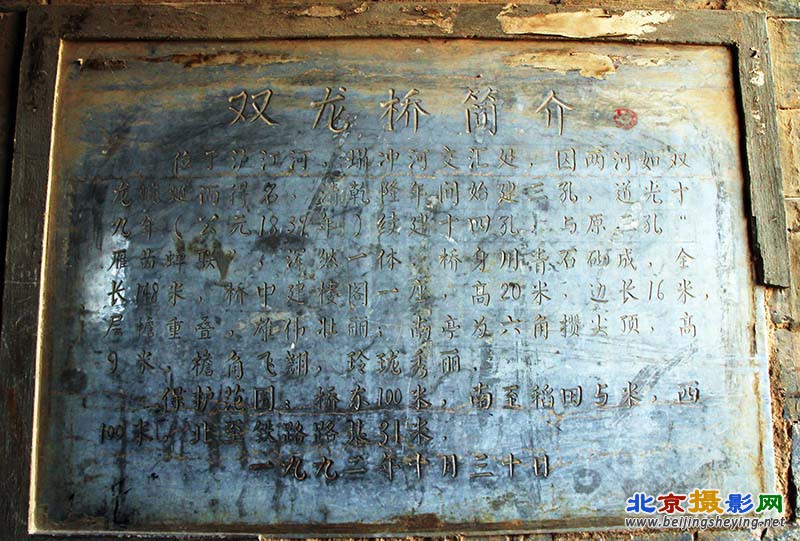 双龙桥简介
位于泸江河、塌冲河交汇处，因两河如双
龙蜿蜒而得名，清乾隆年间始建三孔，道光十
九年（公元1839年）续建十四孔，与原三孔“
雁齿蝉联”，浑然一体，桥身用青石砌成，全
长148米，桥中建楼阁一座，高20米，边长16米，
层檐重叠，雄伟壮丽；南亭为六角攒尖顶，高
9米，檐角飞翔，玲珑秀丽，
保护范围：桥东100米，南至稻田与米，西
100米，北至铁路路基31米，
一九九二年十月三十日
北京摄影网
www.beijingsheying.net